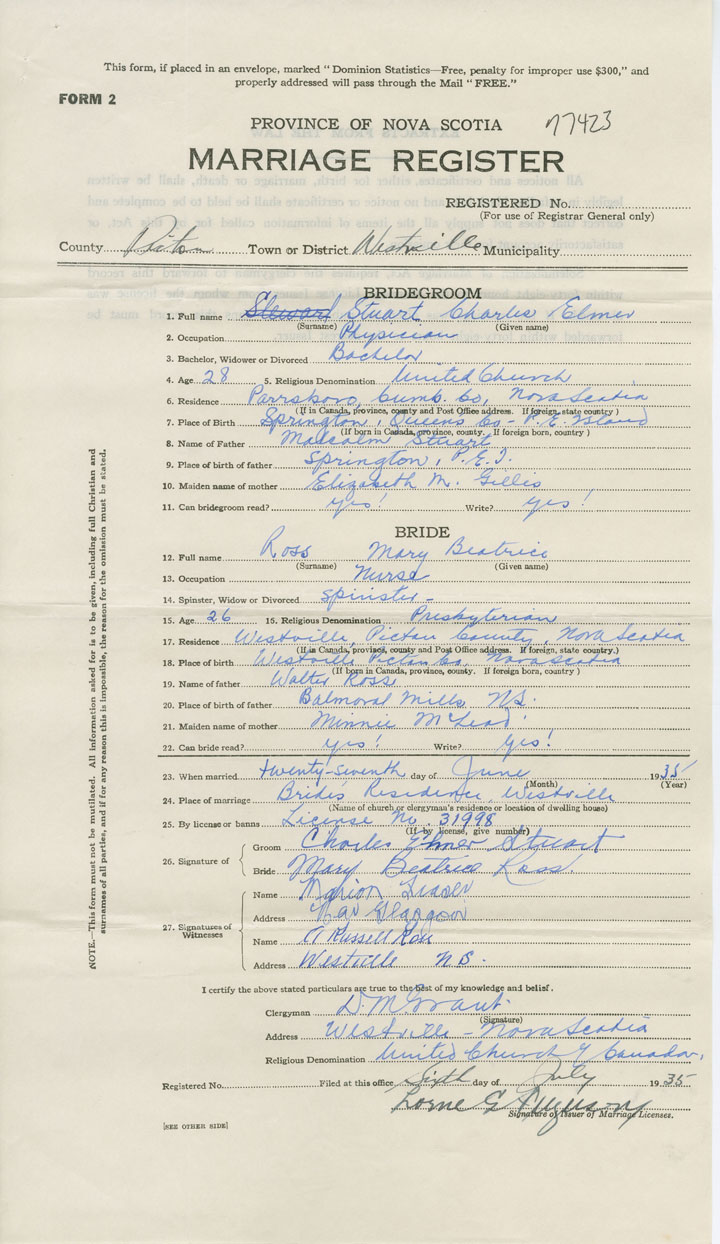 This form, if placed in an envelope, marked "Dominion Statistics—Free, penalty for improper use $300," and
properly addressed will pass through the Mail "FREE."
FORM 2
PROVINCE OF NOVA SCOTIA
77423
MARRIAGE REGISTER
REGISTERED No.
(For use of Registrar General only)
County Pictou Town or District Westville Municipality
BRIDEGROOM
1. Full name Steward Stuart Charles Elmer
(Surname) (Given name)
2. Occupation Physician
3. Bachelor, Widower or Divorced Bachelor
4. Age 28 5. Religious Denomination United Church
6. Residence Parrsboro, Cumb. Co, Nova Scotia
(If in Canada, province, county and Post Office address. If foreign, state country)
7. Place of Birth Springton, Queens Co - P.E. Island
(If born in Canada, province, county. If foreign born, country)
8. Name of Father Malcolm Stuart
9. Place of birth of father Springton, P.E.I.
10. Maiden name of mother Elizabeth M. Gillis
11. Can bridegroom read? yes! Write? yes!
BRIDE
12. Full name Ross Mary Beatrice
(Surname) (Given name)
13. Occupation Nurse
14. Spinster, Widow or Divorced Spinster -
15. Age 26 16. Religious Denomination Presbyterian
17. Residence Westville, Pictou County, Nova Scotia
(If in Canada, province, county and Post Office address. If foreign, state country.)
18. Place of birth Westville Pictou Co. Nova Scotia
(If born in Canada, province, county. If foreign born, country)
19. Name of father Walter Ross
20. Place of birth of father Balmoral Mills N.S.
21. Maiden name of mother Minnie McLeod
22. Can bride read? yes! Write? Yes!
23. When married twenty-seventh day of June 1935
(Month) (Year)
24. Place of marriage Brides Residence, Westville
(Name of church or clergyman's residence or location of dwelling house)
25. By license or banns License No. 31998
(If by license, give number)
26. Signature of
Groom Charles Elmer Stuart
Bride Mary Beatrice Ross.
27. Signatures of Witnesses
Name Marion Fraser
Address New Glasgow
Name A Russell Ross
Address Westville N.S.
I certify the above stated particulars are true to the best of my knowledge and belief.
Clergyman D. M Grant.
(Signature)
Address Westville - Nova Scotia
Religious Denomination United Church of Canada.
Registered No. Filed at this office Sixth day of July 1935
Lorne G Ferguson
Signature of Issuer of Marriage Licenses.
[SEE OTHER SIDE]
NOTE.—This form must not be mutilated. All information asked for is to be given, including full Christian and
surnames of all parties, and if for any reason this is impossible, the reason for the omission must be stated.